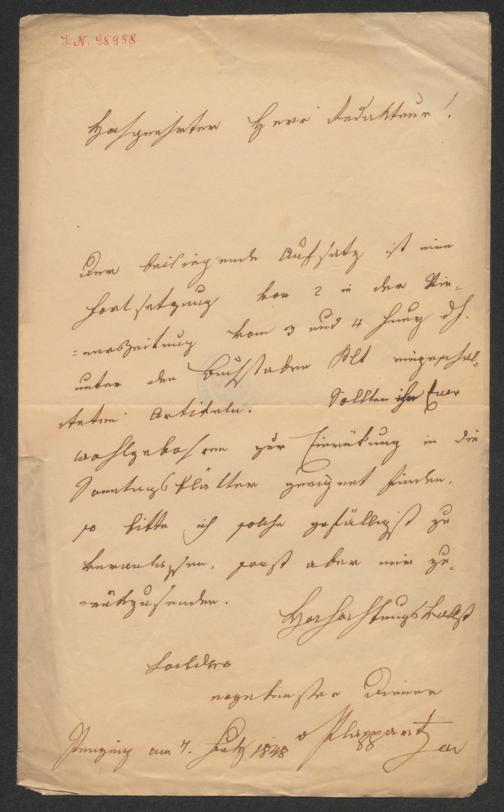 I. N. 98958
Hochgeehrter Herr Redakteur!
Der beiliegende Aufsatz ist eine
Fortsetzung von 2 in der Wie-
=nerzeitung vom 3 und 4 Juny d. J.
unter den Buchstaben Plt eingeschal-
teten Artikeln. Sollten ihn Euer
wohlgebohren zur Einrükung in die
Sonntagsblätter geeignet finden,
so bitte ich solche gefälligst zu
veranlassen, sonst aber mir zu-
=rükzusenden.
Hochachtungsvollst
ergebenster Diener
Penzing am 7. 1848 Plappart